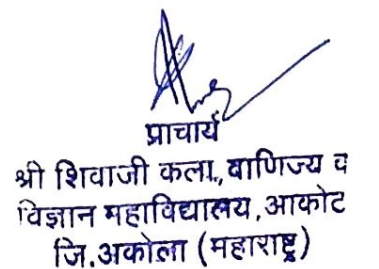 प्राचार्य
श्री शिवाजी कला, वाणिज्य व
विज्ञान महाविद्यालय, आकोट
जि.अकोला (महाराष्ट्र)